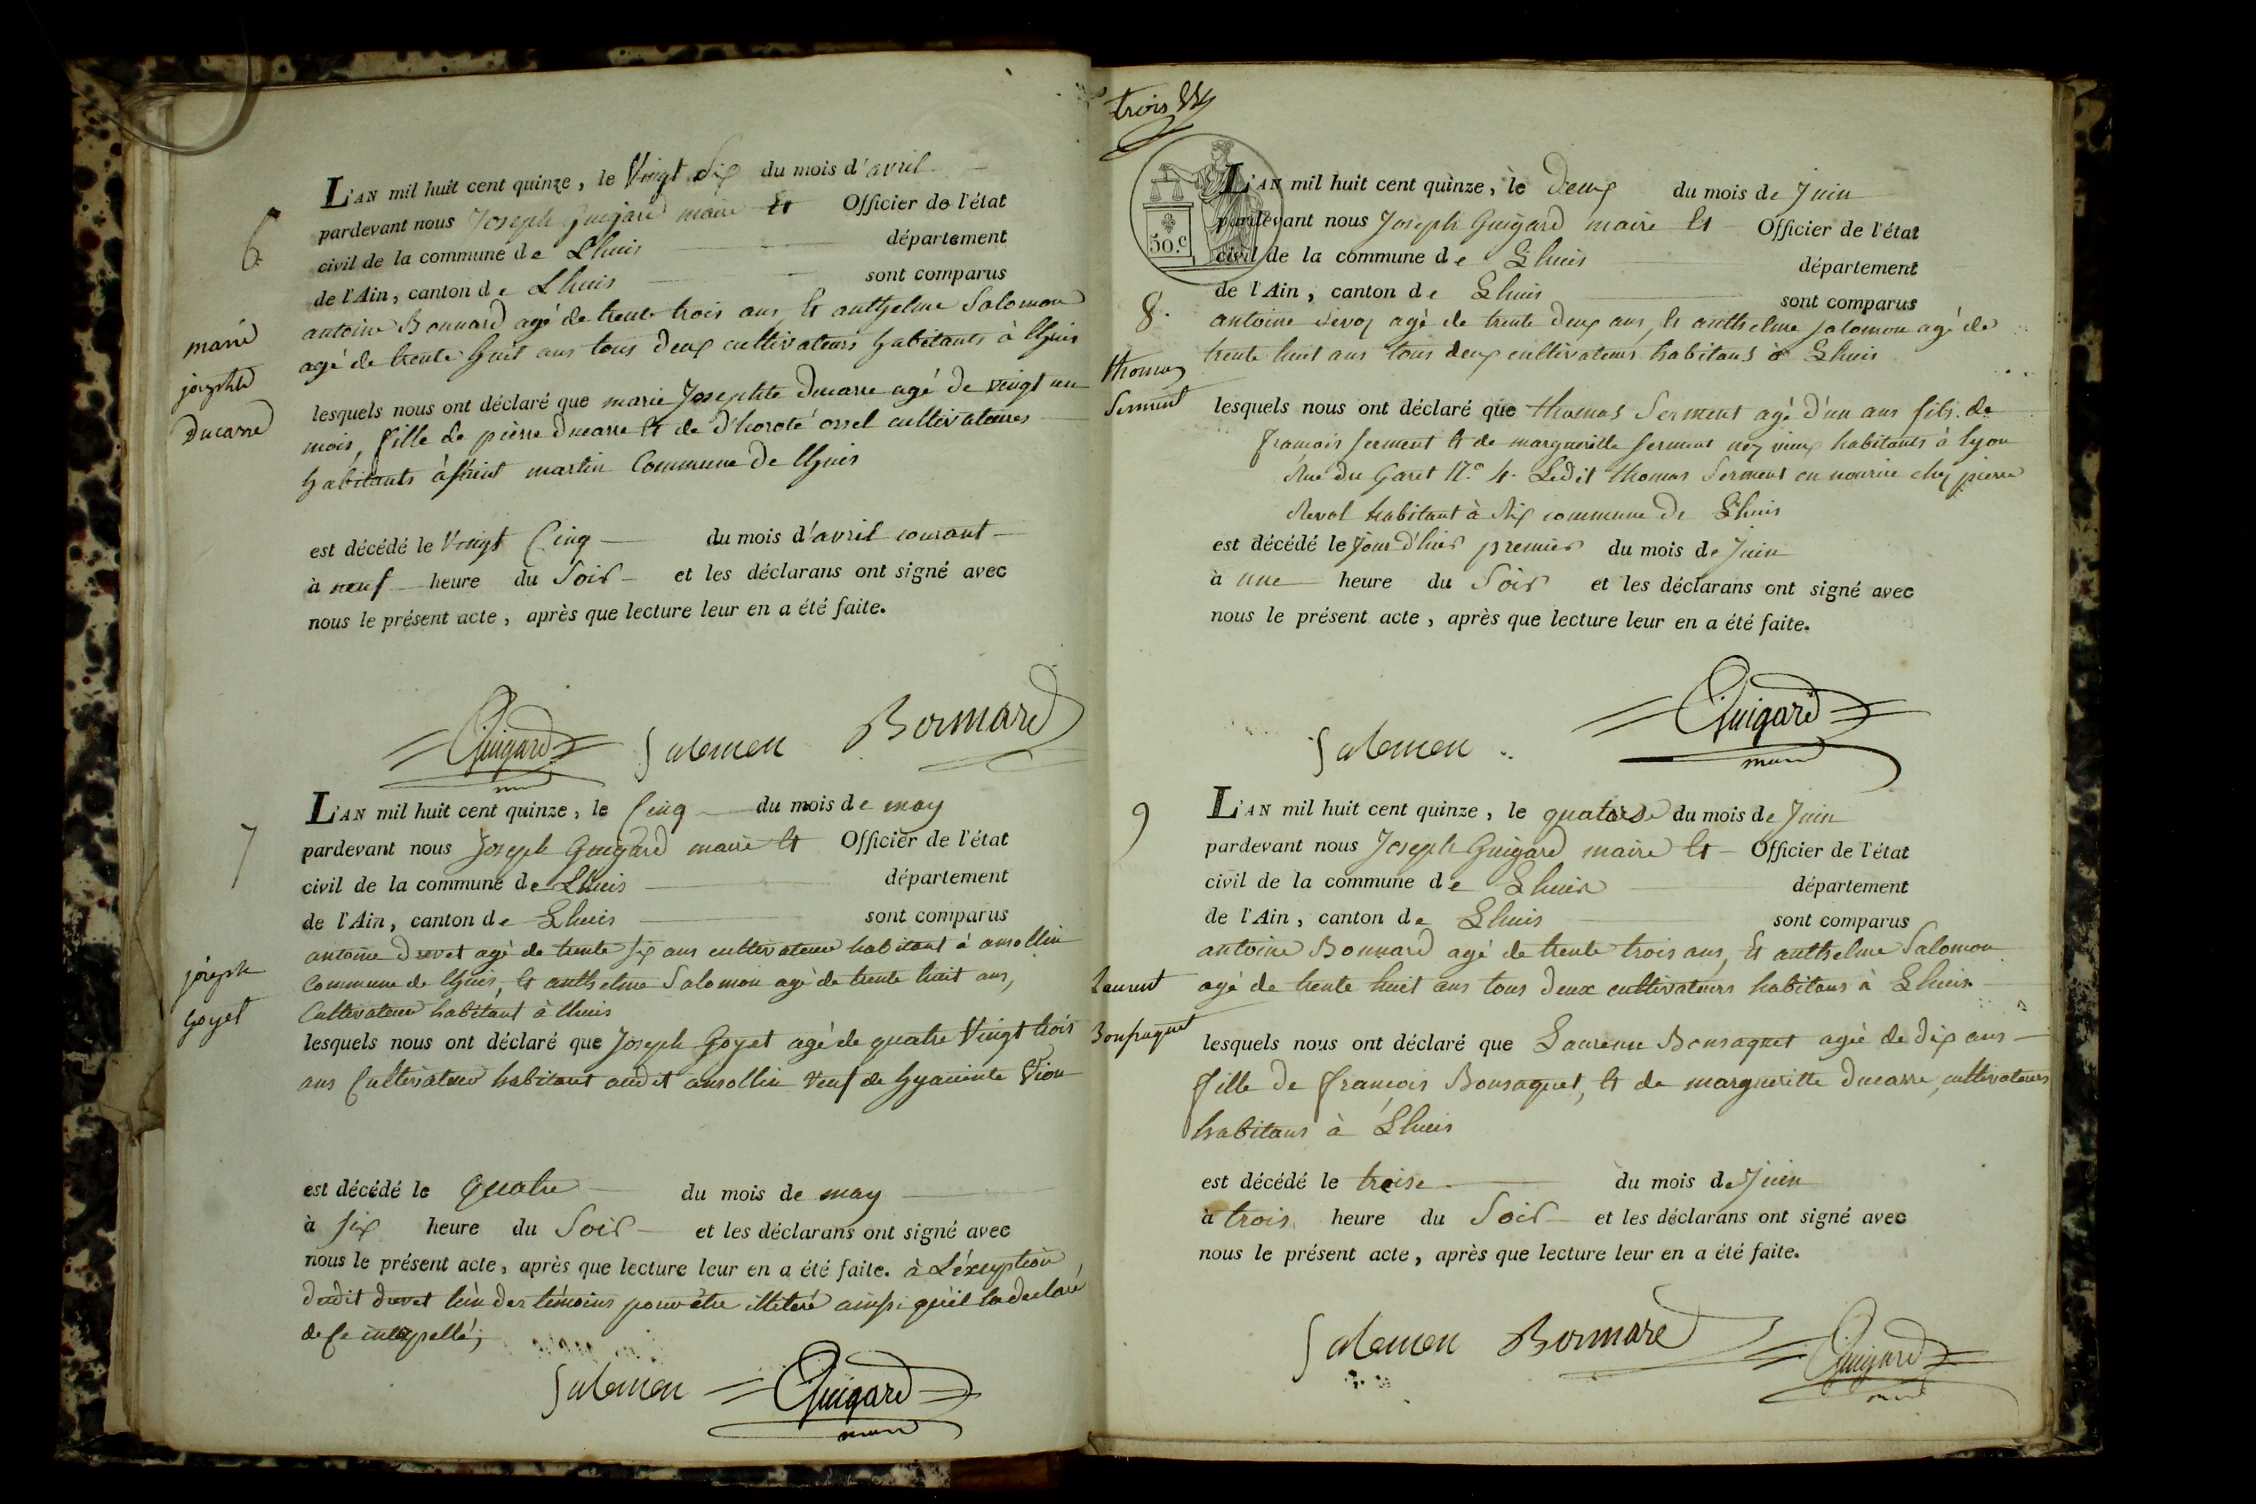 6.
marie
josephte
Ducarre
L'AN mil huit cent quinze, le Vingt Six du mois d'avril
pardevant nous Joseph Guigard maire et Officier de l'état
civil de la commune de Lhuis département
de l'Ain, canton de Lhuis sont comparus
antoine Bonnard agé de trente trois ans, et anthelme Salomon
agé de trente huit ans tous deux cultivateurs habitants à lhuis
lesquels nous ont déclaré que marie Josephte Ducarre agé de vingt un
mois, fille de pierre Ducarre et de d'horoté orsel cultivateurs
habitants à saint martin Commune de lhuis
est décédé le Vingt Cinq du mois d'avril courant
à neuf heure du Soir et les déclarans ont signé avec
nous le présent acte, après que lecture leur en a été faite.
Guigard Salomon Bonnard
7
joseph
goyet
L'AN mil huit cent quinze, le Cinq du mois de may
pardevant nous Joseph Guigard maire et Officier de l'état
civil de la commune de Lhuis département
de l'Ain, canton de Lhuis sont comparus
antoine Drevet agé de trente six ans cultivateur habitant à ansollin
Commune de lhuis, et anthelme Salomon agé de trente huit ans,
Cultivateur habitant à lhuis
lesquels nous ont déclaré que Joseph Goyet agé de quatre Vingt trois
ans Cultivateur habitant audit ansollin veuf de hyacinte Vion
est décédé le quatre du mois de may
à six heure du Soir et les déclarans ont signé avec
nous le présent acte, après que lecture leur en a été faite. à L'éxception
dudit drevet l'un des témoins pour être illiteré ainsi qu'il la declaré
de ce interpellé;
Salomon Guigard
maire
trois
50.c
8.
thomas
Serment
L'AN mil huit cent quinze, le Deux du mois de Juin
pardevant nous Joseph Guigard maire et Officier de l'état
civil de la commune de Lhuis département
de l'Ain, canton de Lhuis sont comparus
antoine agé de trente deux ans, et anthelme Salomon agé de
trente huit ans tous deux cultivateurs habitans à Lhuis
lesquels nous ont déclaré que thomas Serment agé d'un ans fils de
francois serment et de marguerille serment habitants à lyon
Rue du Garet N.° 4. Ledit thomas Serment en nourice chez pierre
Revol habitant à Rix commune de Lhuis
est décédé le jour d'hier premier du mois de Juin
à une heure du Soir et les déclarans ont signé avec
nous le présent acte, après que lecture leur en a été faite.
Salomon Guigard
maire
9
Laurent
Bonsaquet
L'AN mil huit cent quinze, le quatorse du mois de Juin
pardevant nous Joseph Guigard maire et Officier de l'état
civil de la commune de Lhuis département
de l'Ain, canton de Lhuis sont comparus
antoine Bonnard agé de trente trois ans, et anthelme Salomon
agé de trente huit ans tous deux cultivateurs habitans à Lhuis
lesquels nous ont déclaré que Laurenne Bonsaquet agée de dix ans
fille de françois Bonsaquet, et de margueritte Ducarre, cultivateurs
habitans à Lhuis
est décédé le treise du mois de Juin
à trois heure du Soir et les déclarans ont signé avec
nous le présent acte, après que lecture leur en a été faite.
Salomon Bonnard Guigard